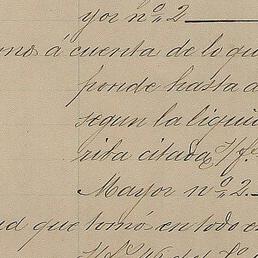 yor nº 2
omó á cuenta de lo qu
ponde hasta
segun la liqui
rita citada
Mayor nº 2.
ud que tomó en todo e